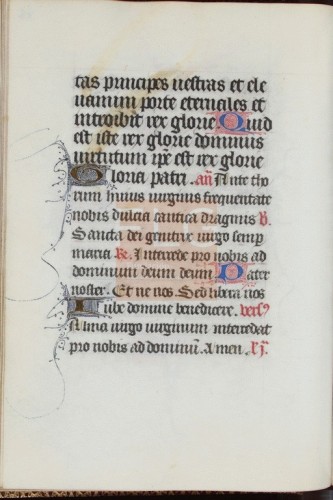 tas principes uestras et ele
uamini porte eternales et
introibit rex glorie Quid
est iste rex glorie dominus
uirtutum ip̃e est rex glorie
Gloria patri . añ Ante tho
rum huius uirginis frequentate
nobis dulcia cantica dragmis ℣.
Sancta dei genitrix uirgo semp
maria ℟. Intercede pro nobis ad
dominum deum deum Pater
noster. Et ne nos. Sed libera nos
Iube domine benedicere. vers᾽
Alma uirgo uirginum intercedat
pro nobis ad dominũ. Amen.